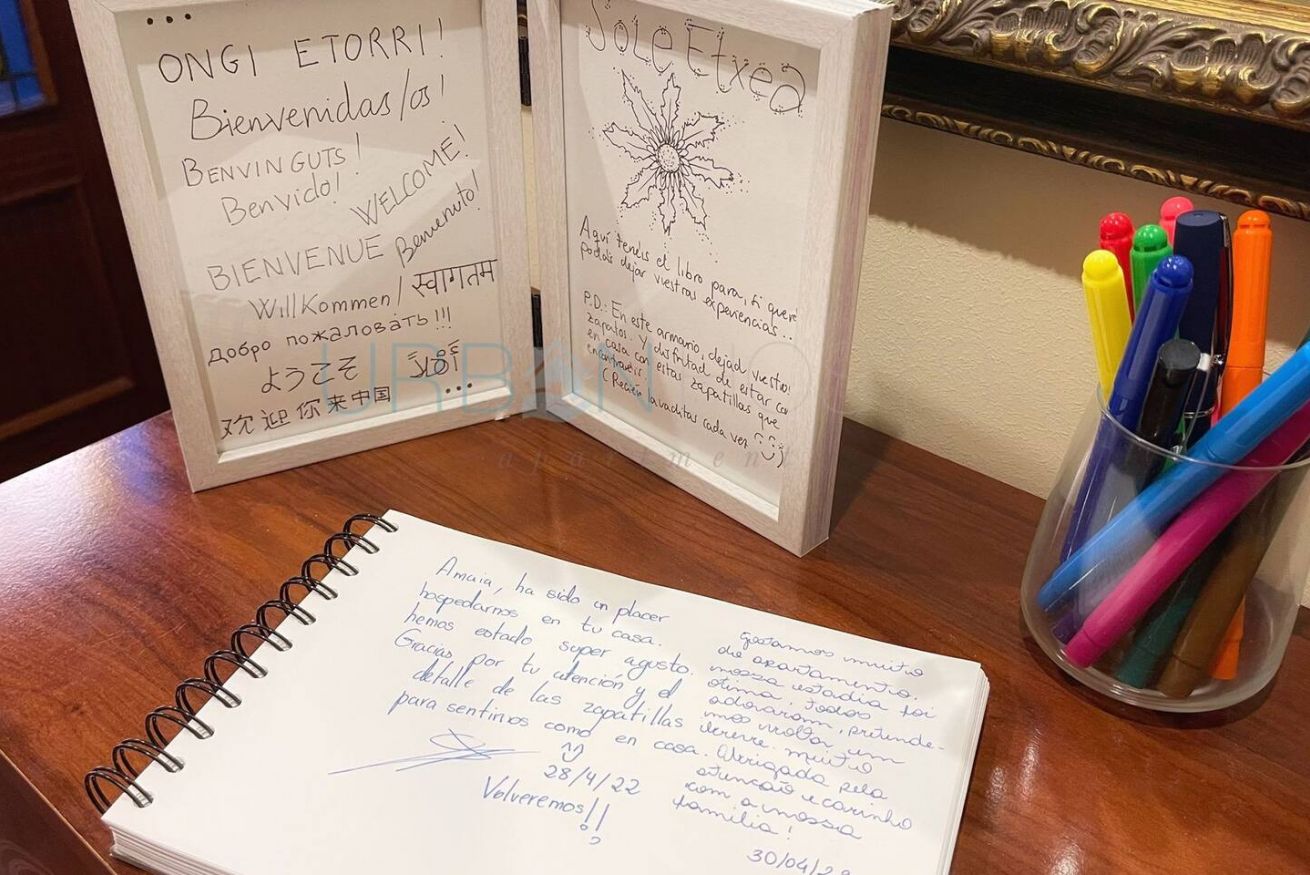 ...
ONGI ETORRI!
Bienvenidas/os!
BENVINGUTS!
Benvido!
WELCOME!
BIENVENUE Benvenuto!
Willkommen! स्वागतम
Добро пожаловать!!!
ようこそ أهلا
欢迎你来中国 ...
Sole Etxea
Aquí tenéis el libro para, si queréi
podáis dejar vuestras experiencias...
P.D.: En este armario, dejad vuestros
zapatos. Y disfrutad de estar co
en casa con estas zapatillas que
encontraréis
(Recién lavaditas cada vez :)
URBAN
apartment
Amaia, ha sido un placer
hospedarnos en tu casa.
hemos estado super agusto.
Gracias por tu atención y el
detalle de las zapatillas
para sentirnos como en casa.
28/4/22
Volveremos!!
Gostamos muito
do apartamento.
nossa estadia foi
ótima. todos
adoraram, pretende-
mos voltar em
breve. muito
Obrigada pela
atenção e carinho
com a nossa
família!
30/04/2